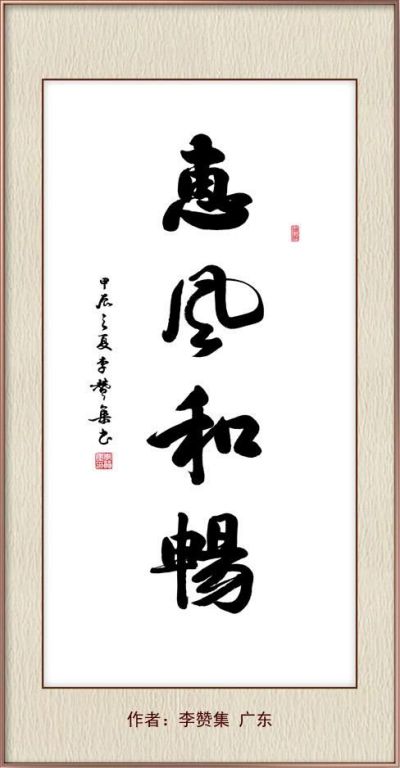 惠风和暢
甲辰之夏李赞集书
作者：李赞集 广东